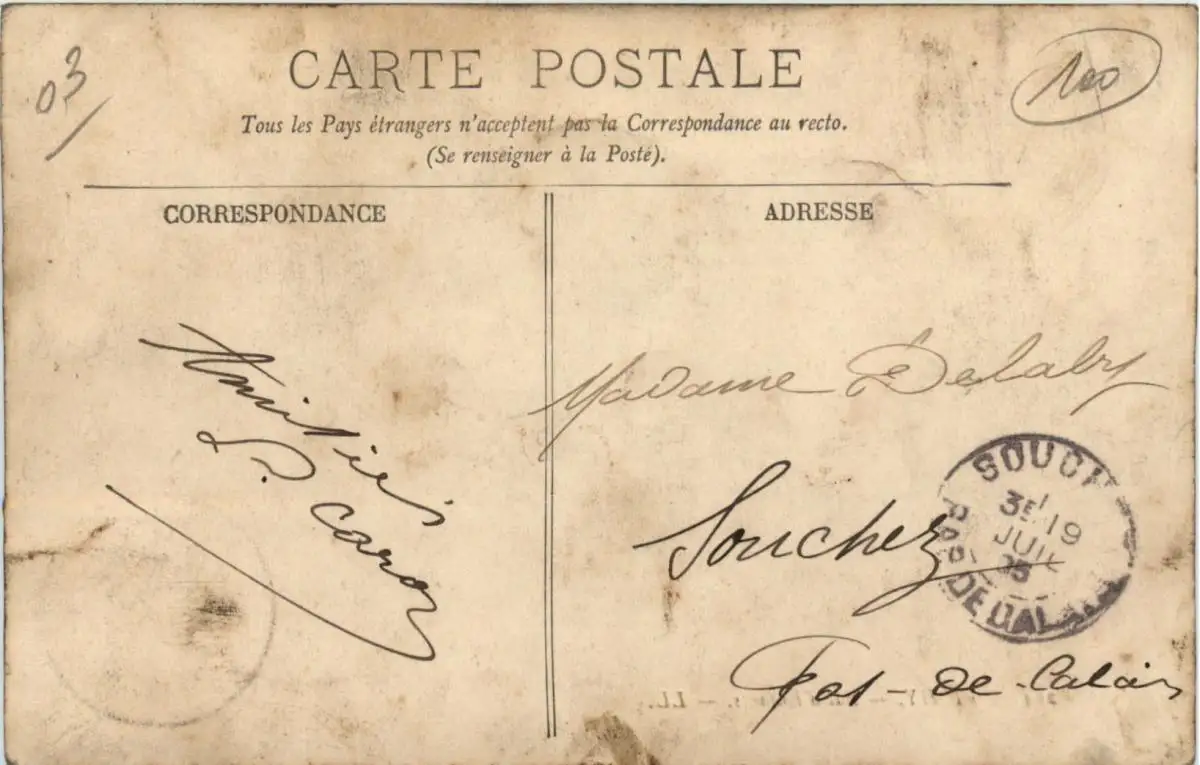 03
100
CARTE POSTALE
Tous les Pays étrangers n'acceptent pas la Correspondance au recto.
(Se renseigner à la Poste).
CORRESPONDANCE
ADRESSE
Amitiés
Caron
Madame Delaby
Souchez
Pas-de-Calais
SOUCH
3E 19
JUIL
05
PAS DE CALAIS
LL.